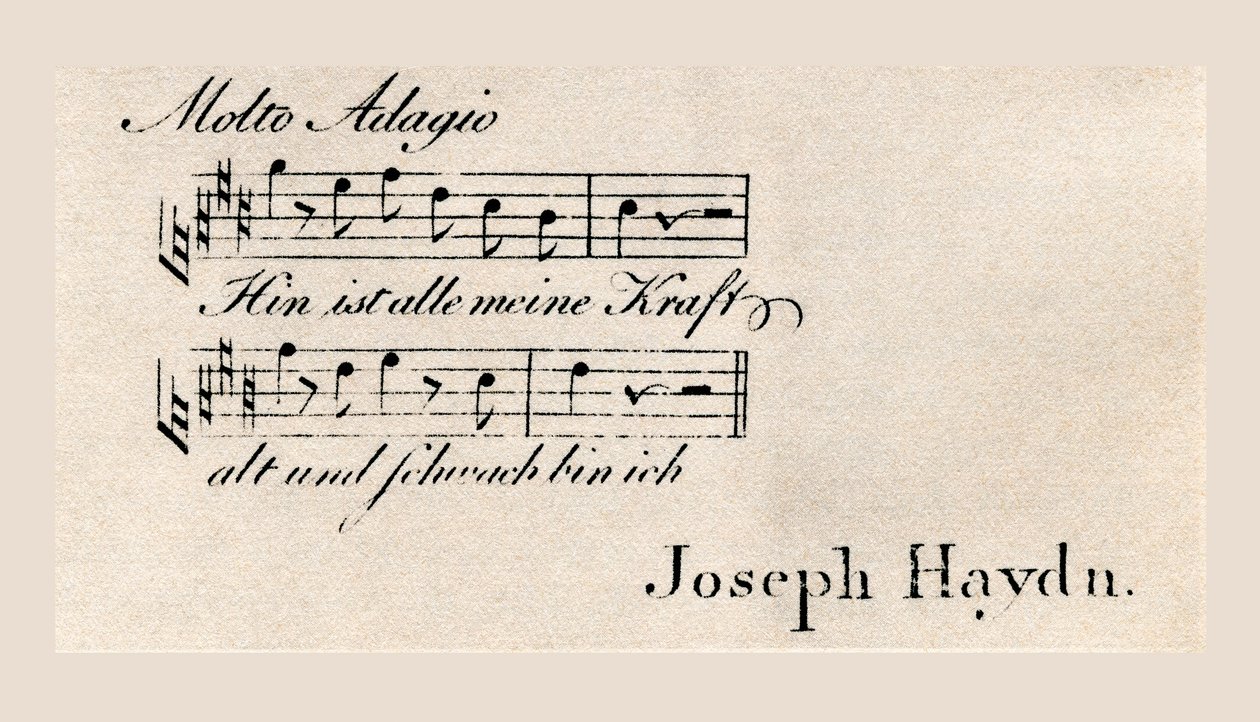 Molto Adagio
Hin ist alle meine Kraft
alt und ſchwach bin ich
Joseph Haydn.